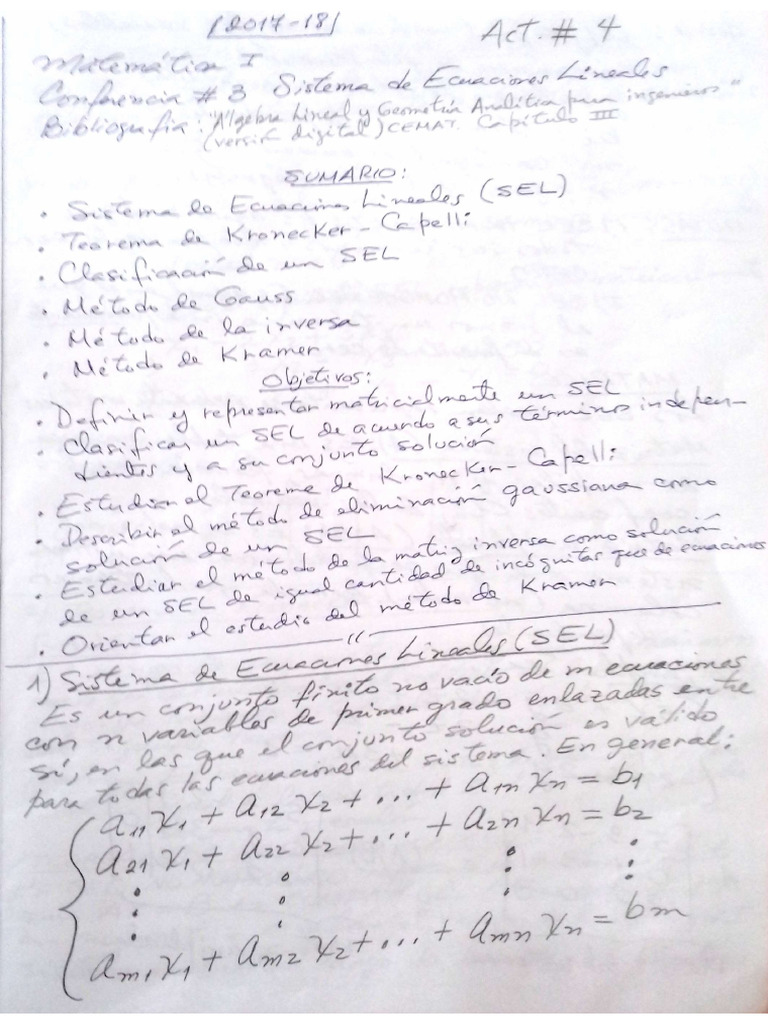 |2017-18|
Act. # 4
Matemática I
Conferencia # 3 Sistema de Ecuaciones Lineales
Bibliografía: "Algebra Lineal y Geometría Analítica para ingenieros"
(versión digital) CEMAT. Capítulo III
SUMARIO:
• Sistema de Ecuaciones Lineales (SEL)
• Teorema de Kronecker-Capelli
• Clasificación de un SEL
• Método de Gauss
• Método de la inversa
• Método de Kramer
Objetivos:
• Definir y representar matricialmente un SEL
• Clasificar un SEL de acuerdo a sus términos indepen-
dientes y a su conjunto solución
• Estudiar el Teorema de Kronecker-Capelli
• Describir el método de eliminación gaussiana como
solución de un SEL
• Estudiar el método de la matriz inversa como solución
de un SEL de igual cantidad de incógnitas que de ecuaciones
• Orientar el estudio del método de Kramer
1) Sistema de Ecuaciones Lineales (SEL)
Es un conjunto finito no vacío de m ecuaciones
con n variables de primer grado enlazadas entre
sí, en las que el conjunto solución es válido
para todas las ecuaciones del sistema. En general:
a11 x1 + a12 x2 + ... + a1n xn = b1
a21 x1 + a22 x2 + ... + a2n xn = b2
⋮ ⋮ ⋮ ⋮
am1 x1 + am2 x2 + ... + amn xn = bm